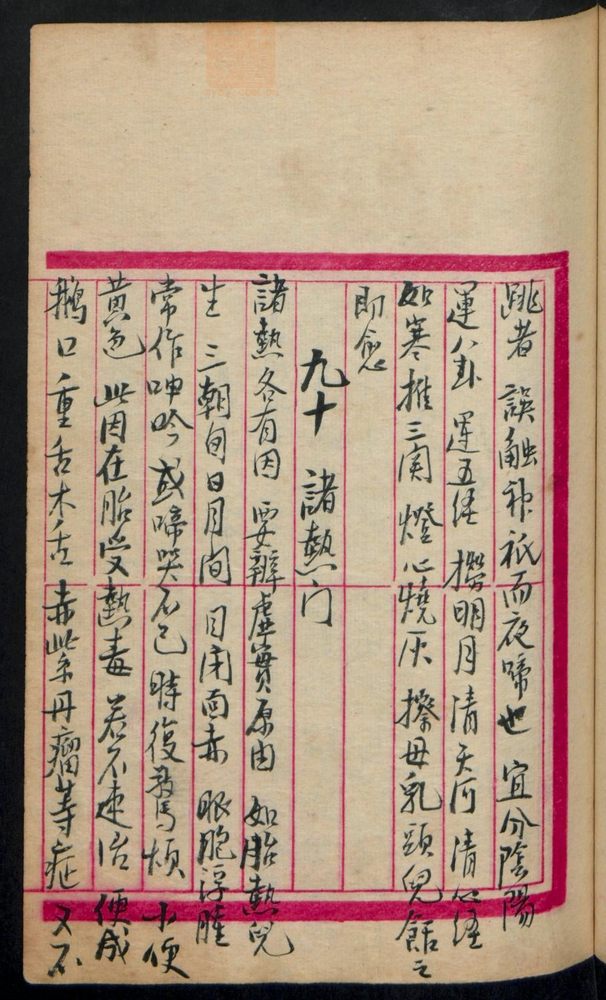 跳者 誤觸神祇而夜啼也 宜分陰陽
運八卦 運五經 撈明月 清天河 清心經
如寒推三関 燈心燒灰 擦母乳頭兒餂之
即愈
九十 諸熱门
諸熱各有因 要辨虛實原由 如胎熱兒
生 三朝旬日月間 目闭面赤 眼胞浮腫
常作呻吟 或啼哭不已 時復驚煩 小便
黃色 此因在胎受熱毒 若不速治 便成
鵝口重舌木舌 赤紫丹瘤等症 又不